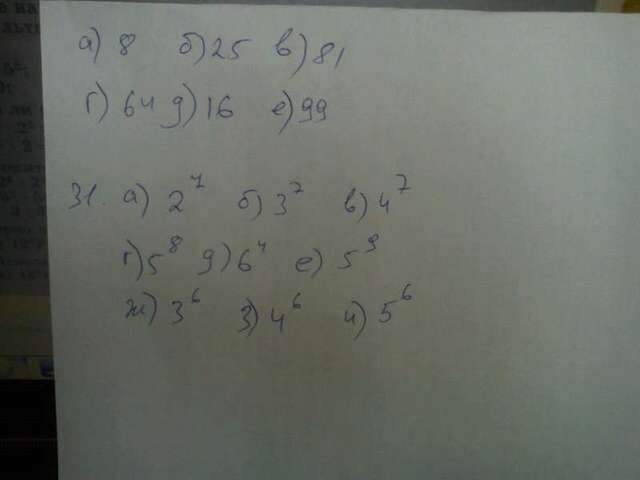 а) 8 б) 25 в) 81
г) 64 д) 16 е) 99
31. а) 2⁷ б) 3⁷ в) 4⁷
г) 5⁸ д) 6⁴ е) 5⁹
ж) 3⁶ з) 4⁶ и) 5⁶